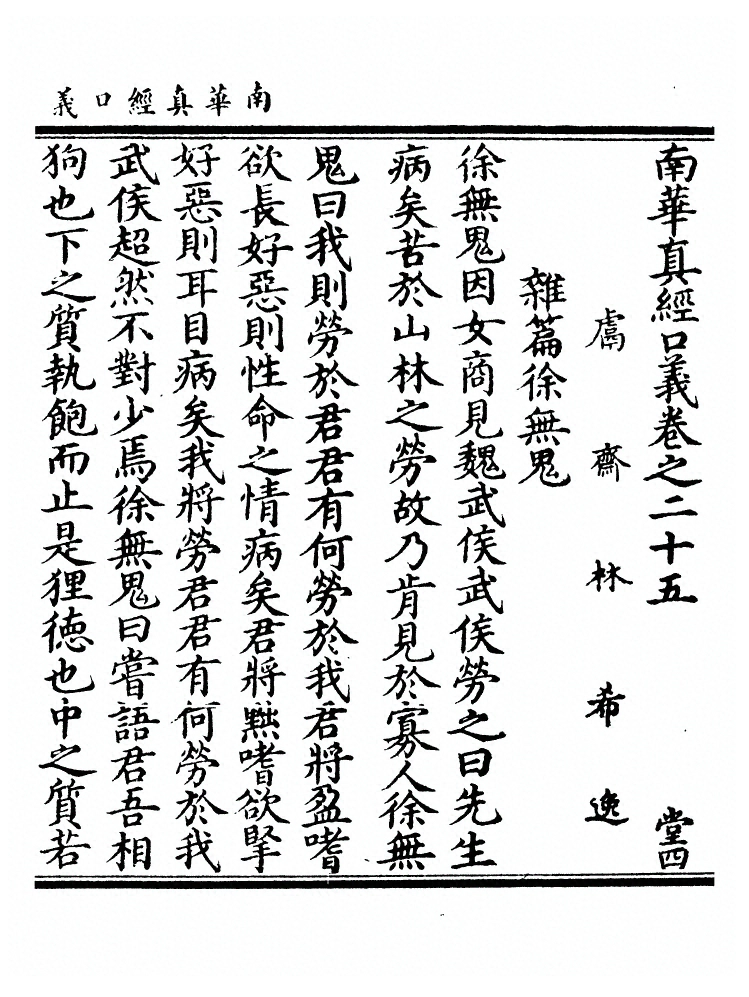 南華真經口義
南華真經口義卷之二十五 堂四
鬳齋林希逸
雜篇徐無鬼
徐無鬼因女商見魏武侯武侯勞之曰先生
病矣苦於山林之勞故乃肯見於寡人徐無
鬼曰我則勞於君君有何勞於我君將盈嗜
欲長好惡則性命之情病矣君將黜嗜欲掔
好惡則耳目病矣我將勞君君有何勞於我
武侯超然不對少焉徐無鬼曰嘗語君吾相
狗也下之質執飽而止是狸德也中之質若